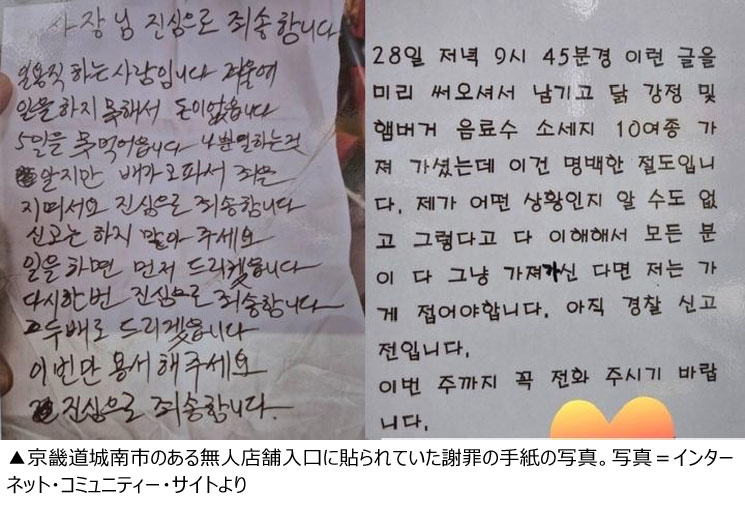 사장님 진심으로 죄송합니다
일용직 하는 사람입니다 겨울에
일을 하지 못해서 돈이없습니다
5일을 못먹어습니다 나쁜일하는것
알지만 배가고파서 죄를
지며서요 진심으로 죄송합니다
신고는 하지 말아 주세요
일을하면 먼저 드리겠읍니다
다시한번 진심으로 죄송합니다
두배로 드리겠읍니다
이번만 용서해주세요
진심으로 죄송합니다.
28일 저녁 9시 45분경 이런 글을
미리 써오셔서 남기고 닭 강정 및
햄버거 음료수 소세지 10여종 가
져 가셨는데 이건 명백한 절도입니
다. 제가 어떤 상황인지 알 수도 없
고 그렇다고 다 이해해서 모든 분
이 다 그냥 가져가신 다면 저는 가
게 접어야합니다. 아직 경찰 신고
전입니다.
이번 주까지 꼭 전화 주시기 바랍
니다.
▲京畿道城南市のある無人店舗入口に貼られていた謝罪の手紙の写真。写真＝インター
ネット・コミュニティー・サイトより